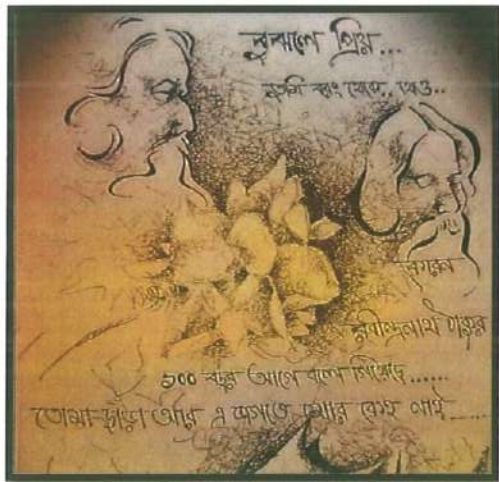 বুঝলে প্রিয়...
তুমি বরং থেকে.. যেও..
কারন
রবীন্দ্রনাথ ঠাকুর
১০০ বছর আগে বলে গিয়েছে......
তোমা ছাড়া আর এ জগতে মোর কেহ নাই......